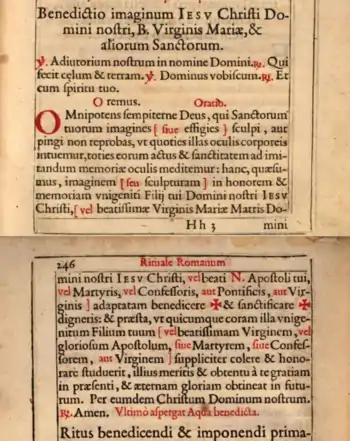 Benedictio imaginum IESV Christi Do-
mini nostri, B. Virginis Mariæ, &
aliorum Sanctorum.
℣. Adiutorium nostrum in nomine Domini. ℟. Qui
fecit cęlum & terram. ℣. Dominus vobiscum. ℟. Et
cum spiritu tuo.
Oremus. Oratio.
OMnipotens sempiterne Deus, qui Sanctorum
tuorum imagines [ siue effigies ] sculpi, aut
pingi non reprobas, vt quoties illas oculis corporeis
intuemur, toties eorum actus & sanctitatem ad imi-
tandum memoriæ oculis meditemur: hanc, quæsu-
mus, imaginem [ seu sculpturam ] in honorem &
memoriam vnigeniti Filij tui Domini nostri IESV
Christi, [ vel beatissimæ Virginis Mariæ Matris Do-
Hh 3 mini
246 Rituale Romanum
mini nostri IESV Christi, vel beati N. Apostoli tui,
vel Martyris, vel Confessoris, aut Pontificis, aut Vir-
ginis ] adaptatam benedicere ✠ & sanctificare ✠
digneris: & præsta, vt quicumque coram illa vnige-
nitum Filium tuum [ vel beatissimam Virginem, vel
gloriosum Apostolum, siue Martyrem, siue Confes-
sorem, aut Virginem ] suppliciter colere & hono-
rare studuerit, illius meritis & obtentu à te gratiam
in præsenti, & æternam gloriam obtineat in futu-
rum. Per eumdem Christum Dominum nostrum.
℟. Amen. Vltimò aspergat Aqua benedicta.
Ritus benedicendi & imponendi prima-